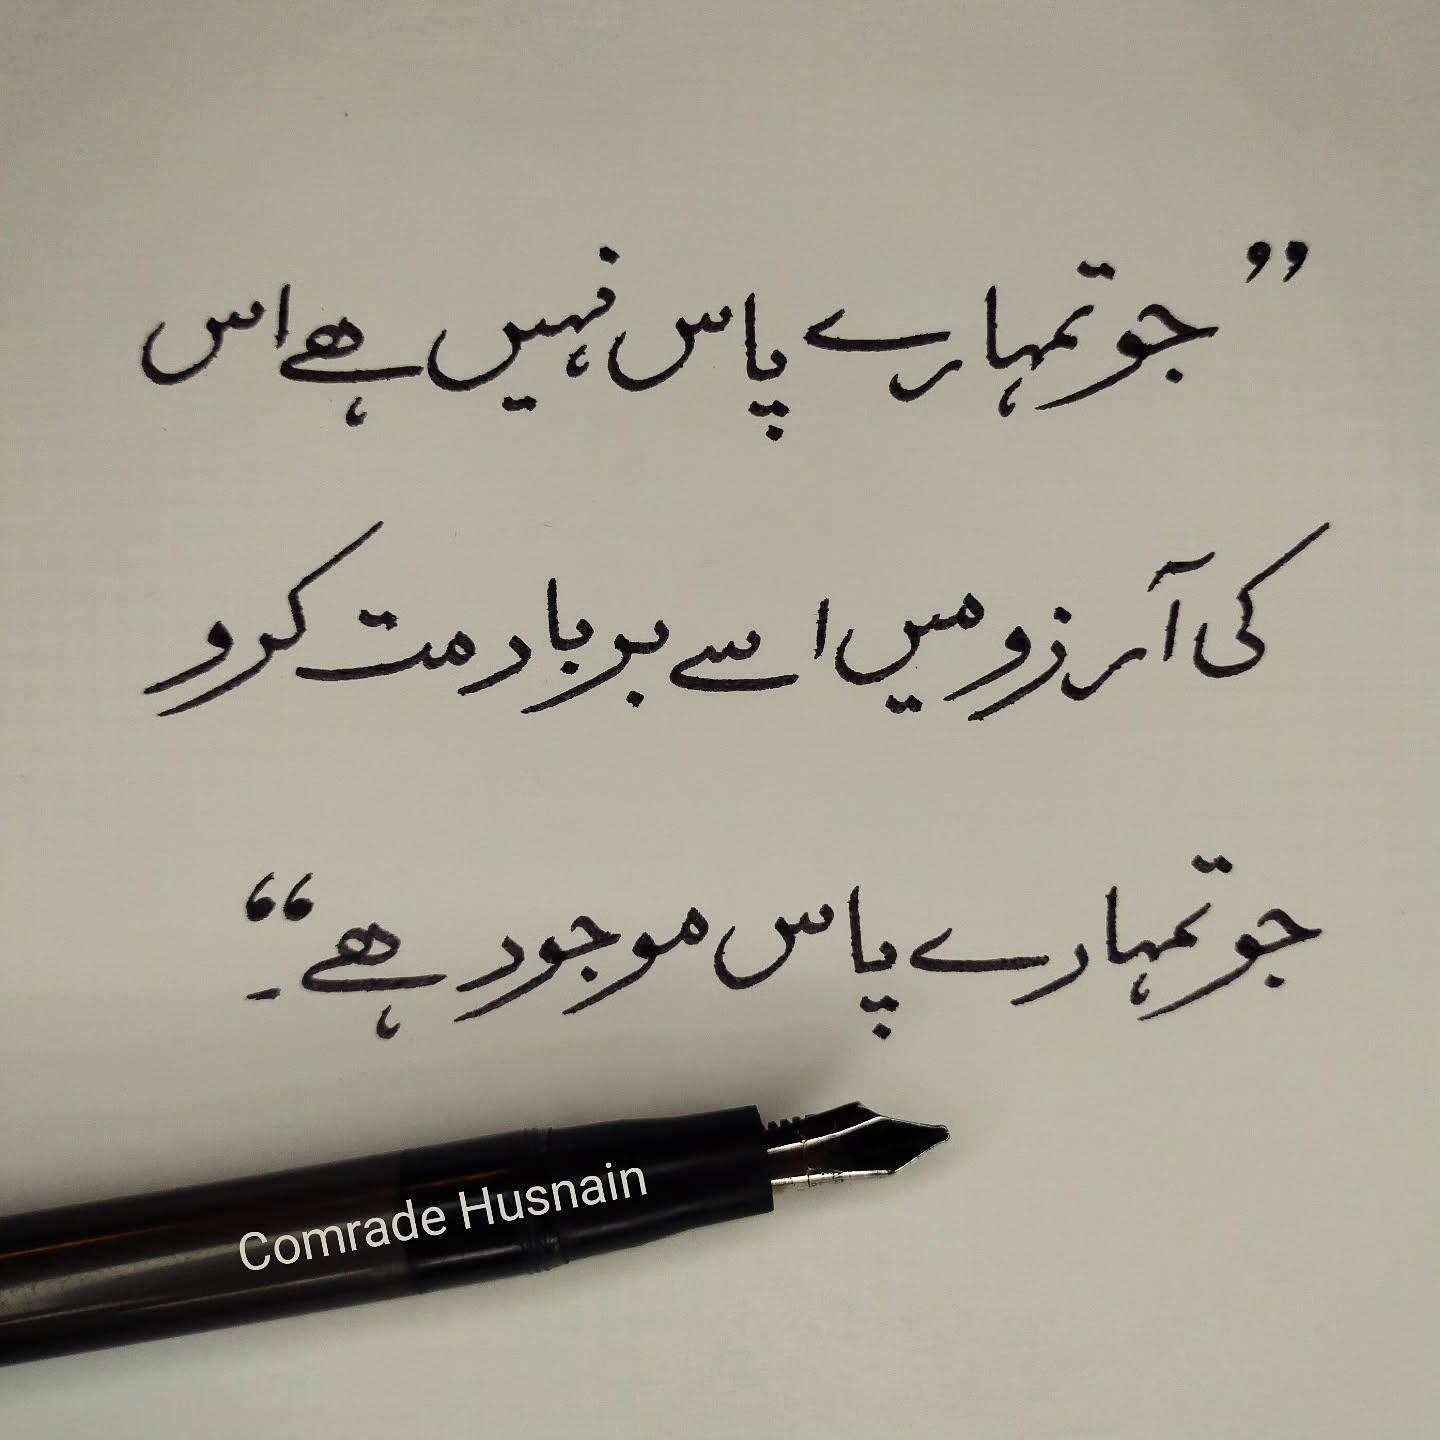 ”جو تمہارے پاس نہیں ھے اس
کی آرزو میں اسے برباد مت کرو
جو تمہارے پاس موجود ھے“۔
Comrade Husnain